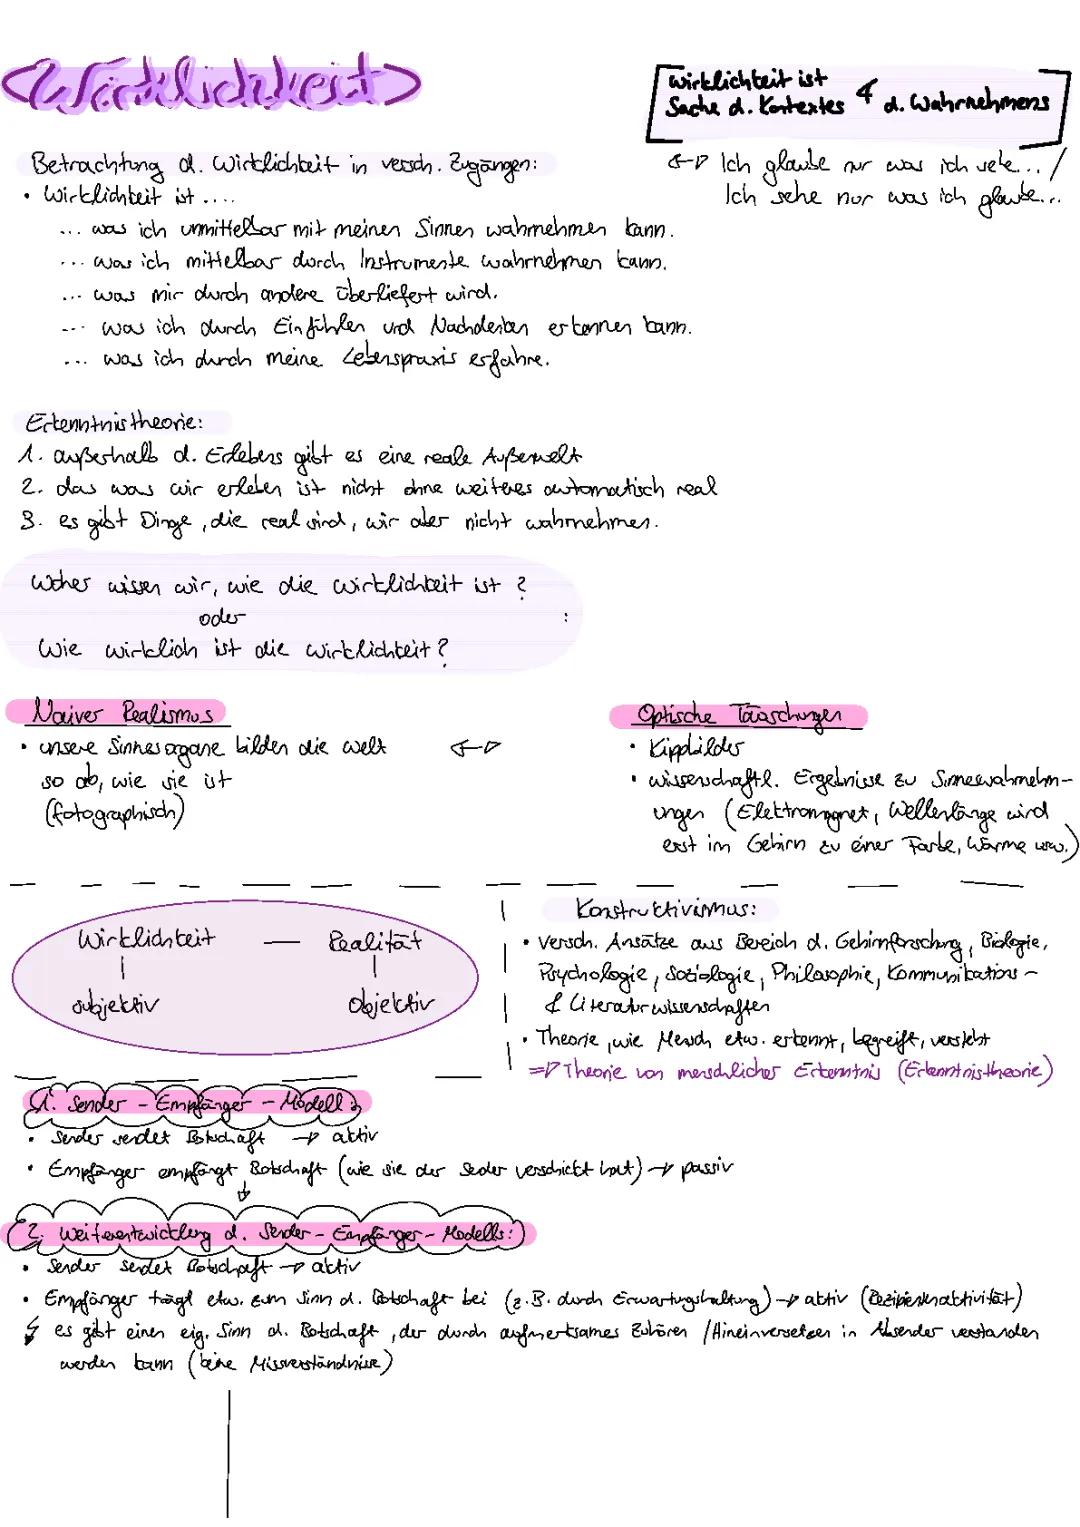 Wirklichkeit
Wirklichkeit ist
Sache d. Kontextes & d. Wahrnehmens
Betrachtung d. Wirklichkeit in versch. Zugängen:
<-> Ich glaube nur was ich sehe... /
Ich sehe nur was ich glaube...
• Wirklichkeit ist ....
... was ich unmittelbar mit meinen Sinnen wahrnehmen kann.
... was ich mittelbar durch Instrumente wahrnehmen kann.
... was mir durch andere überliefert wird.
... was ich durch Einfühlen und Nachdenken erkennen kann.
... was ich durch meine Lebenspraxis erfahre.
Erkenntnistheorie:
1. außerhalb d. Erlebens gibt es eine reale Außenwelt
2. das was wir erleben ist nicht ohne weiteres automatisch real
3. es gibt Dinge, die real sind, wir aber nicht wahrnehmen.
Woher wissen wir, wie die Wirklichkeit ist?
oder :
Wie wirklich ist die Wirklichkeit?
Naiver Realismus
• unsere Sinnesorgane bilden die Welt <->
so ab, wie sie ist
(fotographisch)
Optische Täuschungen
• Kippbilder
• wissenschaftl. Ergebnisse zu Sinneswahrnehm-
ungen (Elektromagnet, Wellenlänge wird
erst im Gehirn zu einer Farbe, Wärme usw.)
Wirklichkeit — Realität
subjektiv objektiv
Konstruktivismus:
• versch. Ansätze aus Bereich d. Gehirnforschung, Biologie,
Psychologie, Soziologie, Philosophie, Kommunikations-
& Literaturwissenschaften
• Theorie, wie Mensch etw. erkennt, begreift, versteht
=> Theorie von menschlicher Erkenntnis (Erkenntnistheorie)
1. Sender - Empfänger - Modell:
• Sender sendet Botschaft -> aktiv
• Empfänger empfängt Botschaft (wie sie der Sender verschickt hat) -> passiv
2. Weiterentwicklung d. Sender - Empfänger - Modells:
• Sender sendet Botschaft -> aktiv
• Empfänger trägt etw. zum Sinn d. Botschaft bei (z.B. durch Erwartungshaltung) -> aktiv (Rezipientenaktivität)
es gibt einen eig. Sinn d. Botschaft, der durch aufmerksames Zuhören / Hineinversetzen in Absender verstanden
werden kann (keine Missverständnisse)